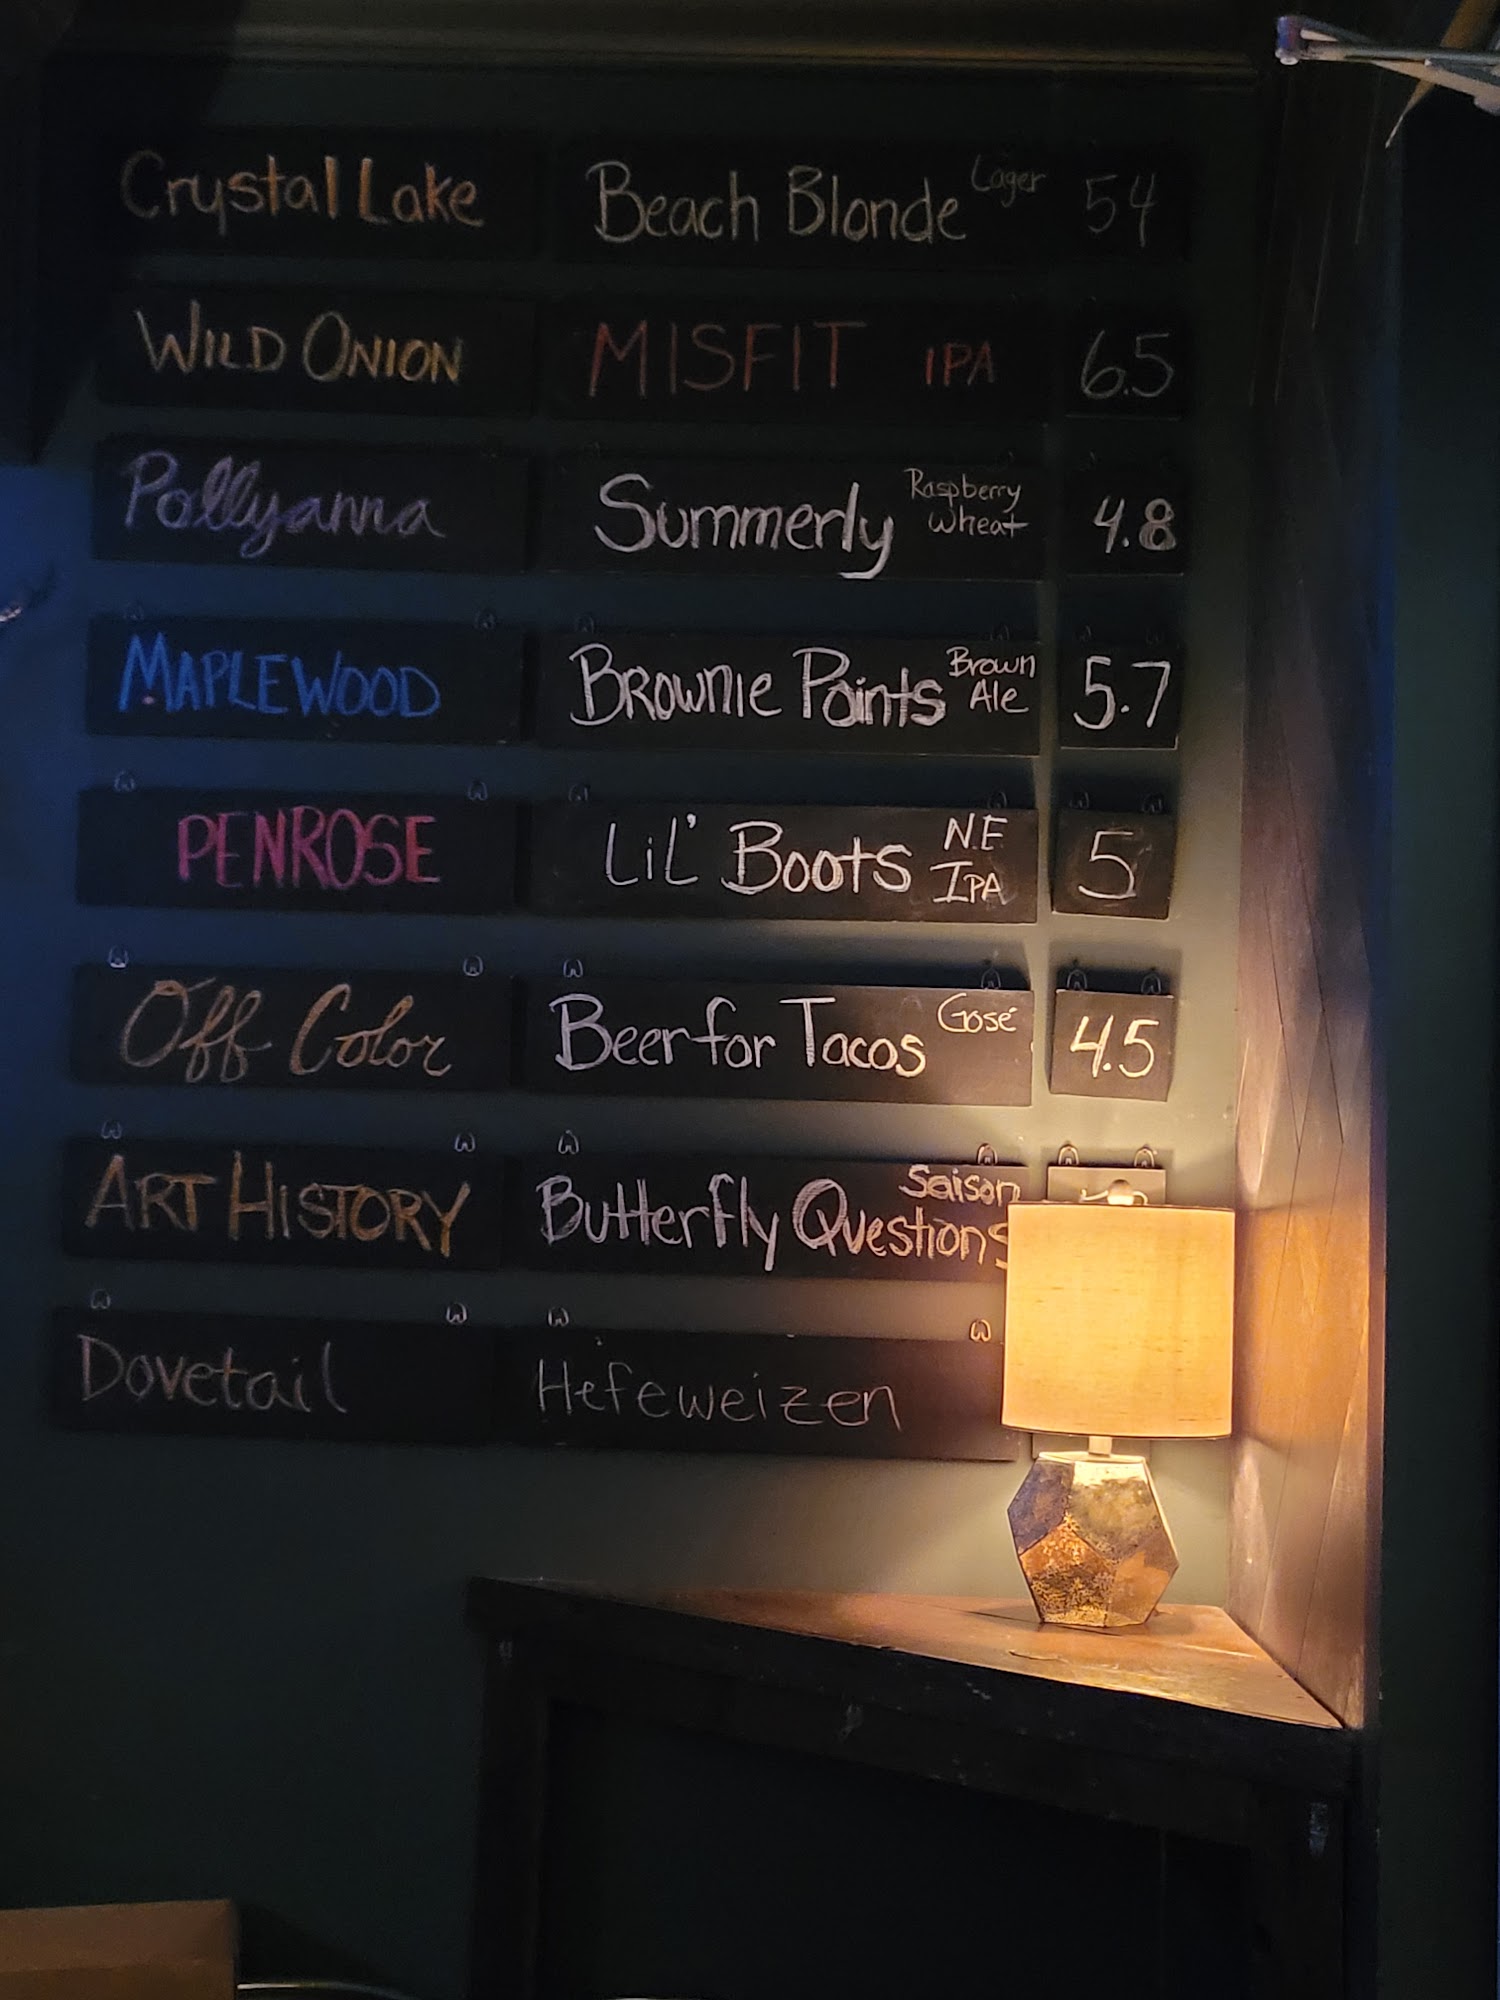 Crystal Lake Beach Blonde Lager 54
WILD ONION MISFIT IPA 6.5
Pollyanna Summerly Raspberry Wheat 4.8
MAPLEWOOD BROWNIE Points Brown Ale 5.7
PENROSE LiL' BOOTS N.E IPA 5
Off Color Beer for Tacos Gosé 4.5
ART HISTORY Butterfly Questions Saison
Dovetail Hefeweizen